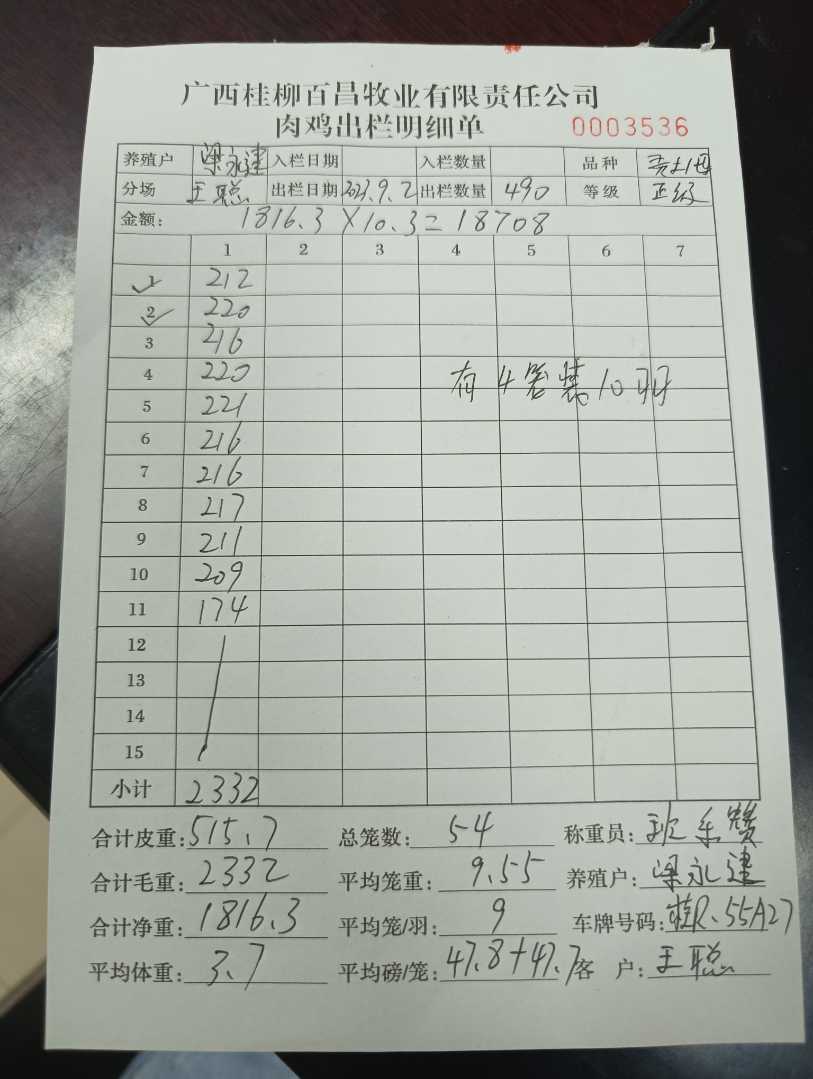 广西桂柳百昌牧业有限责任公司
肉鸡出栏明细单 0003536
养殖户 梁永建 入栏日期 入栏数量 品种
分场 王聪 出栏日期 2023.9.2 出栏数量 490 等级 正级
金额: 1816.3×10.3=18708
1 2 3 4 5 6 7
1 212
2 220
3 216
4 220 有4笼装10羽
5 221
6 216
7 216
8 217
9 211
10 209
11 174
12
13
14
15
小计 2332
合计皮重: 515.7 总笼数: 54 称重员:
合计毛重: 2332 平均笼重: 9.55 养殖户: 梁永建
合计净重: 1816.3 平均笼/羽: 9 车牌号码: 桂R.55A27
平均体重: 3.7 平均磅/笼: 47.8+47.7 客 户: 王聪